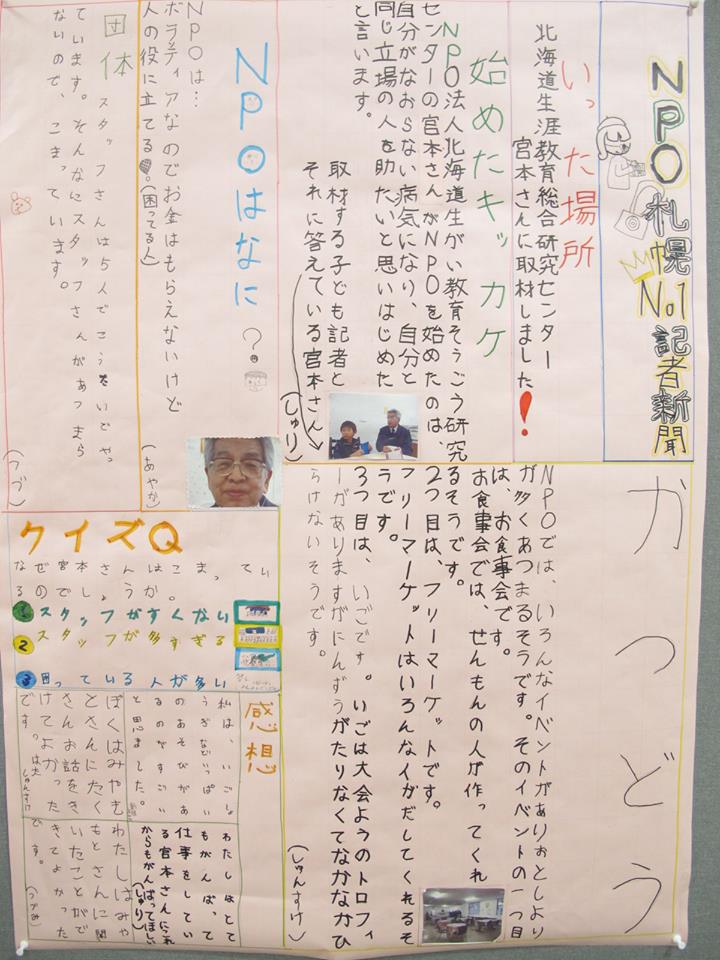 NPO札幌No.1記者新聞
いった場所
北海道生涯教育総合研究センター
宮本さんに取材しました!
始めたキッカケ
NPO法人北海道生がい教育そうごう研究
センターの宮本さんがNPOを始めたのは、
自分がなおらない病気になり、自分と
同じ立場の人を助たいと思いはじめた
と言います。
取材する子ども記者と
それに答えている宮本さん
(しゅり)
NPOはなに?
NPOは…
ボラティアなのでお金はもらえないけど
人の役に立てる。(困ってる人)
(あやか)
団体
スタッフさんは5人でこうたいでやっ
ています。そんなにスタッフさんがあつまら
ないので、こまっています。
(つづ)
かつどう
NPOでは、いろんなイベントがありおとしより
が多くあつまるそうです。そのイベントの一つ目
は、お食事会です。
お食事会では、せんもんの人が作ってくれ
るそうです。
2つ目は、フリーマーケットです。
フリーマーケットはいろんな人がだしてくれるそ
うです。
3つ目は、いごです。いごは大会ようのトロフィ
ーがありますがにんずうがたりなくてなかなかひ
らけないそうです。
(しゅんすけ)
クイズQ
なぜ宮本さんはこまってい
るのでしょうか。
1 スタッフがすくない
2 スタッフが多すぎる
3 困っている人が多い
感想
私は、いごしょ
うぎなどいっぱい
のあそびがあ
るのがすごい
と思ました。
わたしはとて
もがんばって
仕事をしてい
る宮本さんにこれ
からもがんばってほしい
(しゅり)
ぼくはみやも
とさんにたく
さんお話をき
けてよかった
です。
しゅんすけ
わたしはみや
もとさんに聞
いたことがで
きてよかった
です。